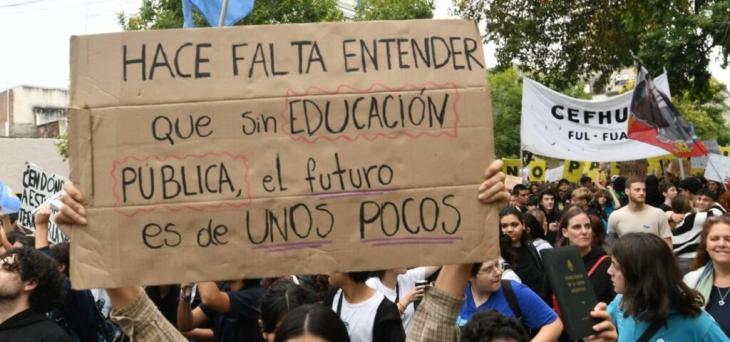 HACE FALTA ENTENDER
que sin EDUCACIÓN
PÚBLICA, el futuro
es de UNOS POCOS
CEFHU
FUL - FUA